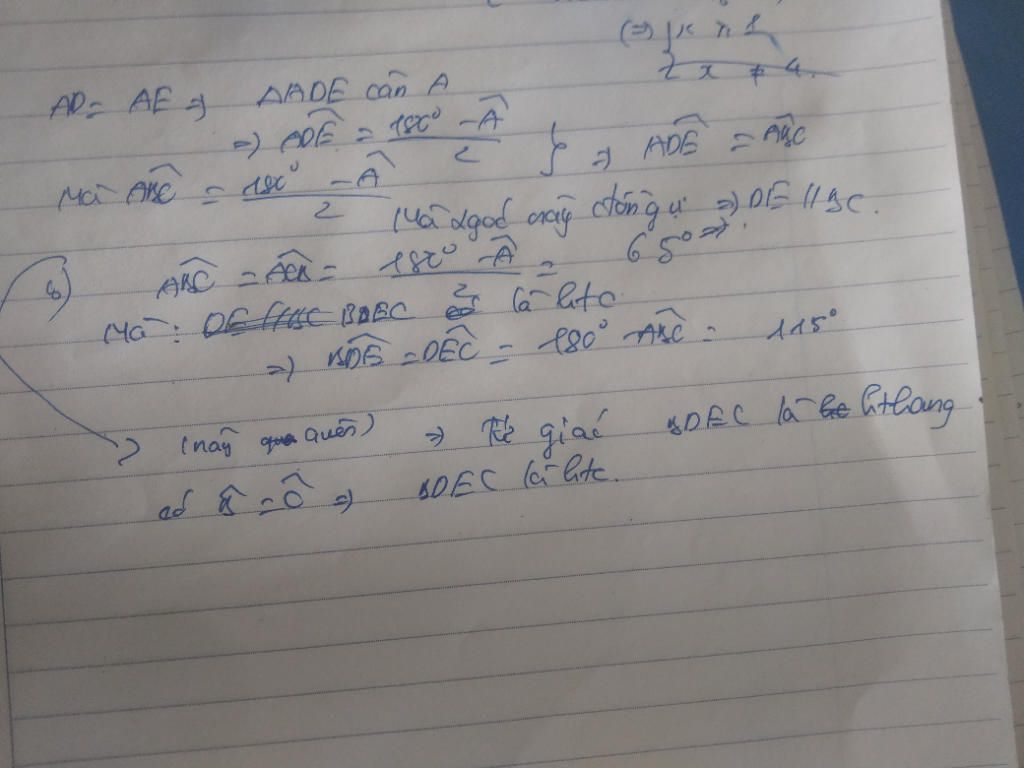 (=) { x > 1
x ≠ 4.
AD = AE => ΔADE cân A
=> ADE^ = (180° - A^)/2 } => ADE^ = ABC^
Mà ABC^ = (180° - A^)/2
Mà 2 góc này đồng vị => DE // BC.
b) ABC^ = ACB^ = (180° - A^)/2 = 65° =>.
Mà: DE // BC BDEC là htc
=> BDE^ = DEC^ = 180° - ABC^ = 115°
(nãy quên) => Tứ giác BDEC là hthang
có B^ = C^ => BDEC là htc.